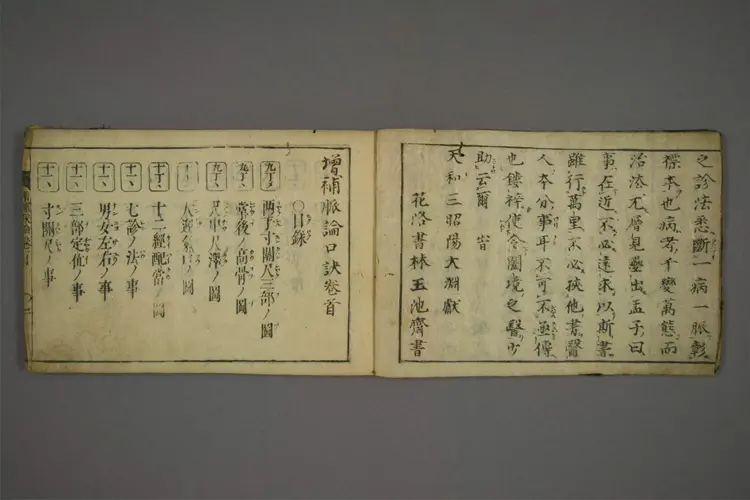 之診法悉斷一病一脈彰
標本也病者千變萬態而
治法尤層見疊出孟子曰
事在近不必遠求以斯書
雖行萬里不必挾他書醫
人本分事耳不可不亟傳
也鏤梓使合闔境之醫少
助云爾 旹
天和三昭陽大淵獻
花洛書林玉池齋書
增補脈論口訣卷首
○目錄
九丁メ 兩手寸關尺三部ノ圖
九丁 掌後ノ高骨ノ圖
九丁 尺中尺澤ノ圖
人迎氣口ノ圖
十丁 十二經配當ノ圖
十一 七診ノ法ノ事
十一 男女左右ノ事
十一 三部定位ノ事
十二 寸關尺ノ事